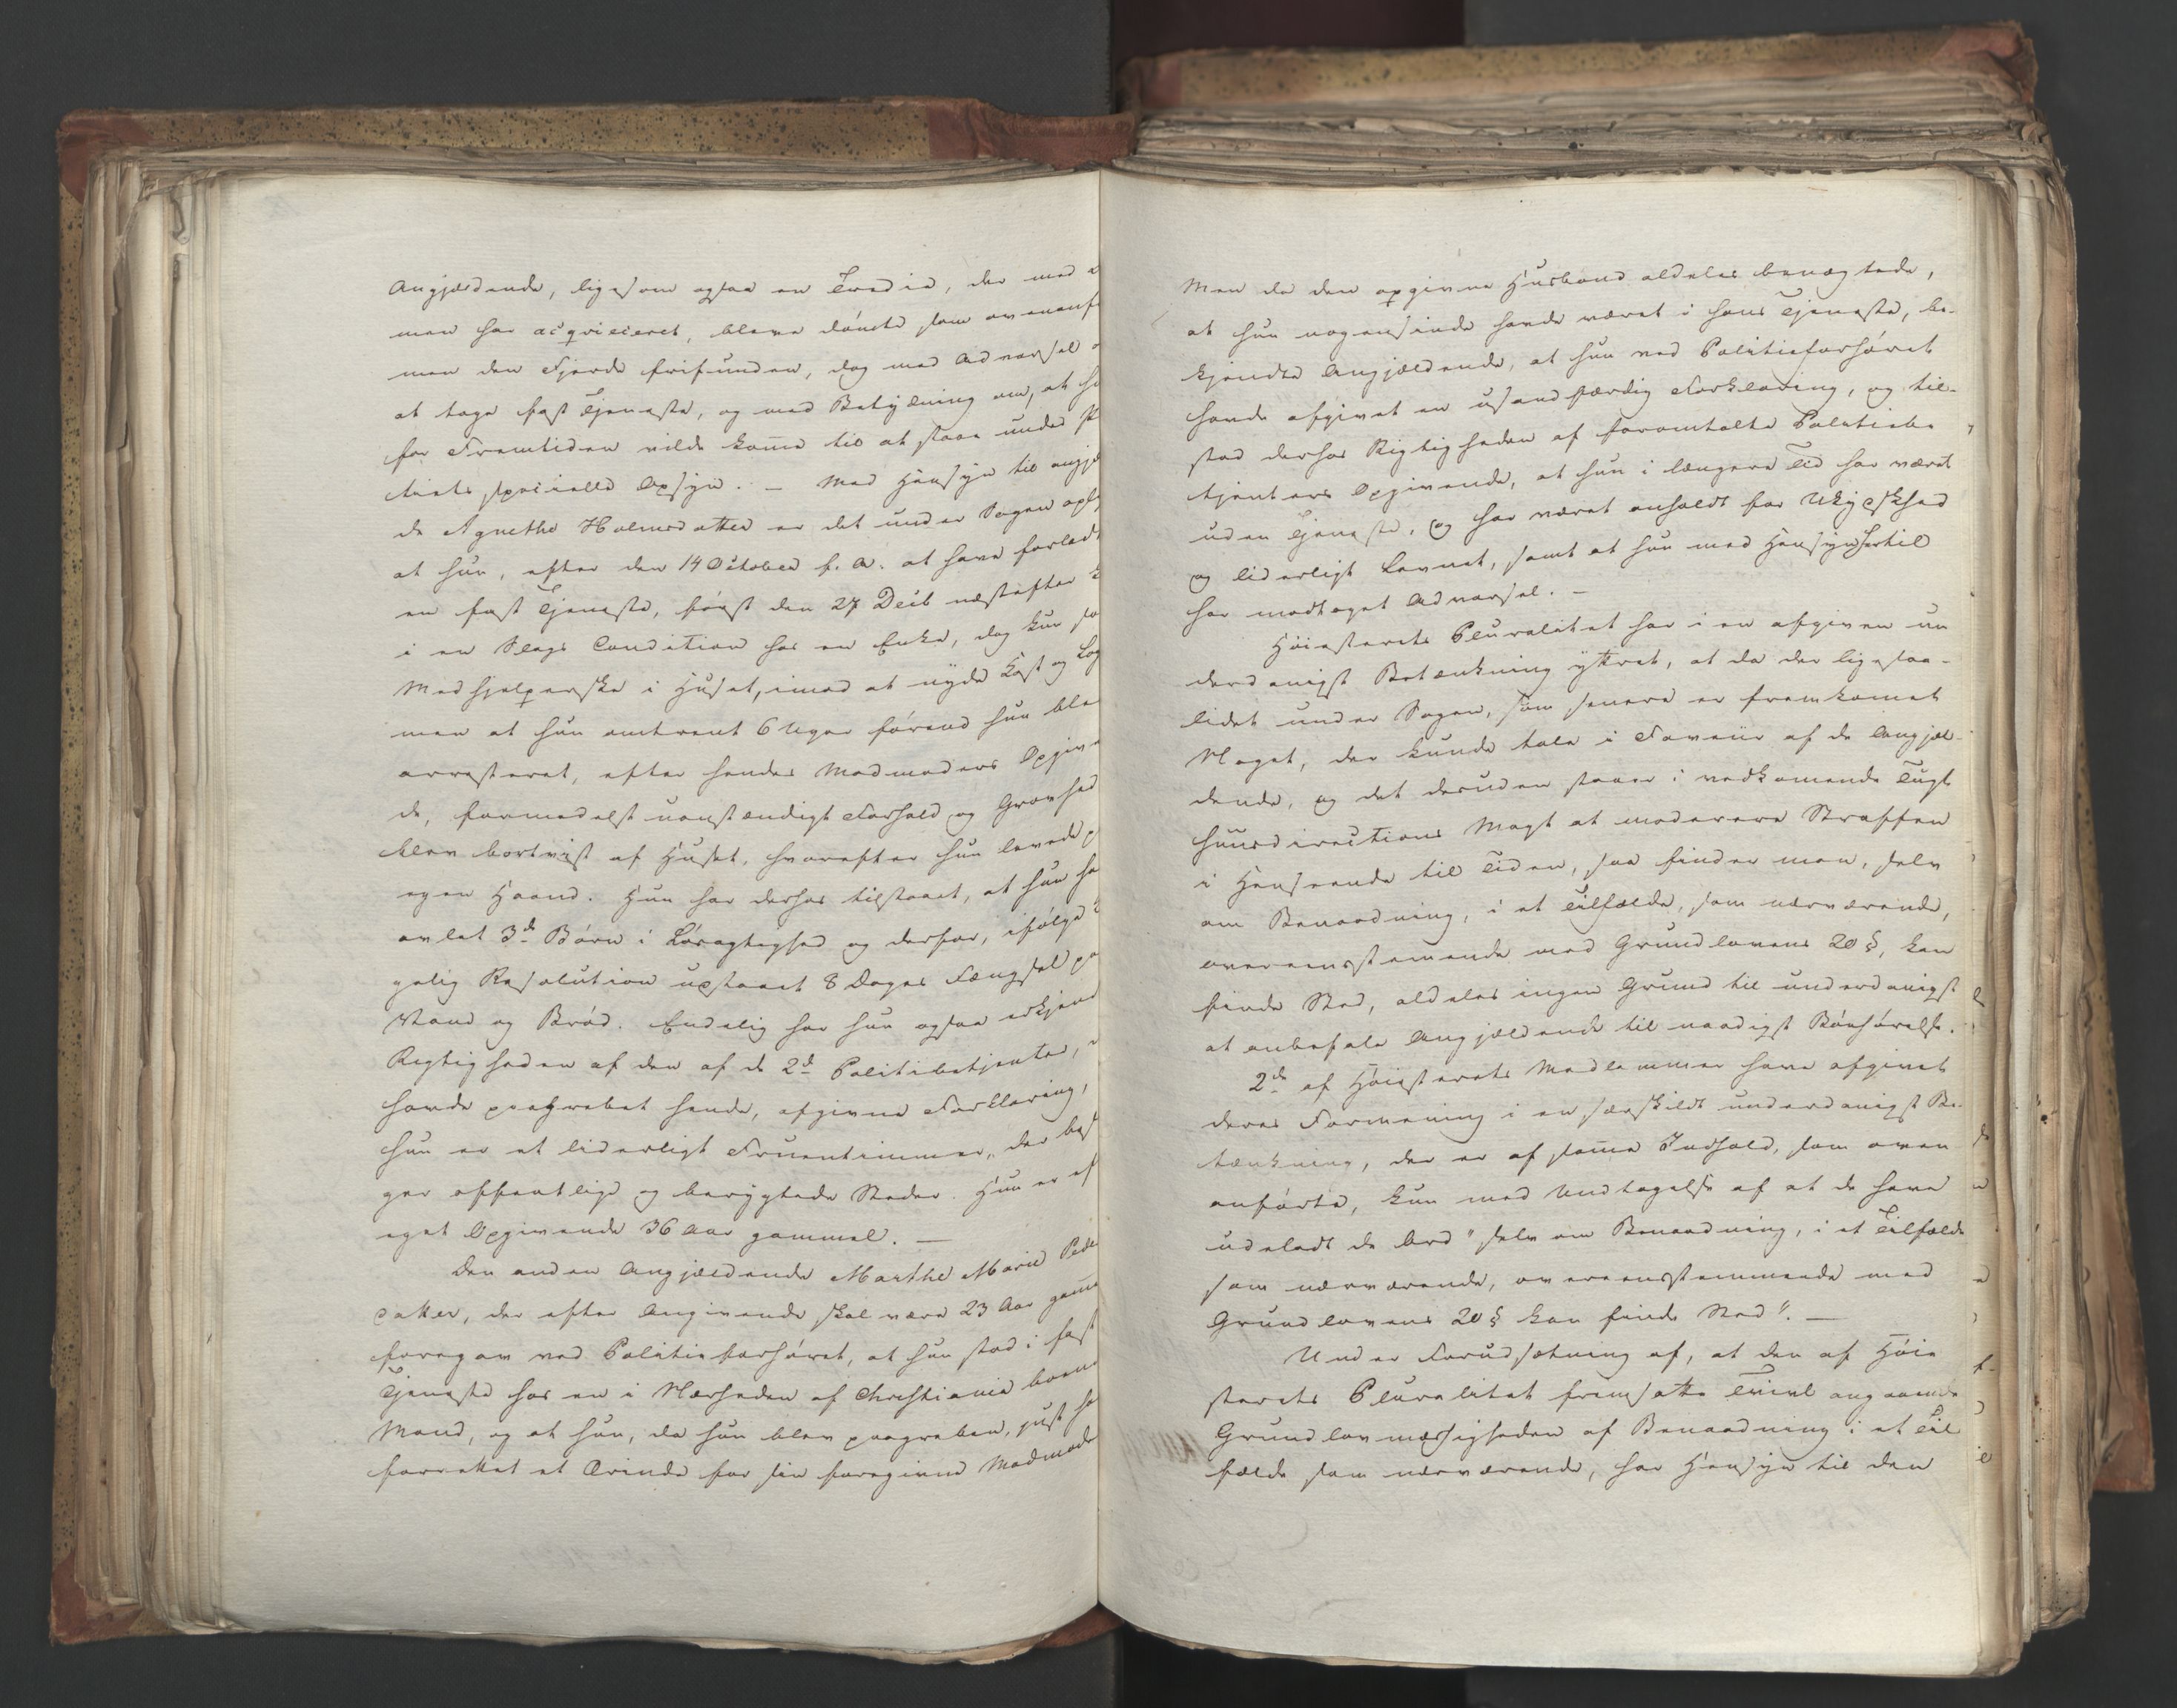 Angjældende, ligesom ogsaa en Tredie, der med
men har acqviesceret, bleve dömte som ovenanf
men den Fjerde frifunden, dog med Advarsel
at tage fast Tjeneste, og med Betydning om, at h
for Fremtiden vilde kome til at staae under P
tiets specielle Opsyn. — Med Hensyn til angj
de Agnethe Holmsdatter er det under Sagen opl
at hun, efter den 14 October f. A. at have forladt
en fast Tjeneste, först den 27 Decb næstefter
i en Slags Condition hos en Enke, dog kun so
Medhjelperske i Huset, imod at nyde Kost og Log
men at hun omtrent 6 Uger förend hun ble
arresteret, efter hendes Madmoders Opgiv
de, formedelst uanstændigt Forhold og Grovhed
blev bortvist af Huset, hvorefter hun levede p
egen Haand. Hun har derhos tilstaaet, at hun ha
avlet 3de Börn i Lösagtighed og derfor, ifölge
gelig Resolution udstaaet 8 Dages Fængsel p
Vand og Bröd. Endelig har hun ogsaa erkjend
Rigtigheden af den af de 2de Politibetjenter,
havde paagrebet hende, afgivne Forklaring,
hun er et liderligt Fruentimmer, der besö
ger offentlige og berygtede Steder. Hun er ef
eget Opgivende 36 Aar gammel. —
Den anden Angjældende Marthe Marie Peder
datter, der efter Angivende skal være 23 Aar game
foregav ved Politieforhöret, at hun stod i fast
Tjeneste hos en i Nærheden af Christiania boen
Mand, og at hun, da hun blev paagreben, just ha
forrettet et Ærinde for sin foregivne Madmode
Men da den opgivne Husbond aldeles benægtede,
at hun nogensinde havde været i hans Tjeneste, be-
kjendte Angjældende, at hun ved Politieforhöret
havde afgivet en usandfærdig Forklaring, og til-
stod derhos Rigtigheden af foromtalte Politiebe
tjenters Opgivende, at hun i længere Tid har været
uden Tjeneste, og har været anholdt for Ukydskhed
og liderligt Levnet, samt at hun med Hensyn hertil
har modtaget Advarsel. —
Höiesterets Pluralitet har i en afgiven un
derdanigst Betænkning yttret, at da der ligesaa-
lidet under Sagen, som senere er fremkomet
Noget, der kunde tale i Faveur af de Angjæl-
dende, og det desuden staaer i vedkomende Tugt
huusdirections Magt at moderere Straffen
i Henseende til Tiden, saa finder man, selv
om Benaadning, i et Tilfælde, som nærværende,
overeensstemende med Grundlovens 20 §, kan
finde Sted, aldeles ingen Grund til underdanigst
at anbefale Angjældende til naadigst Bönhörelse.
2de af Höiesterets Medlemmer have afgivet
deres Formening i en særskildt underdanigst Be-
tænkning, der er af same Indhold, som oven
anförte, kun med Undtagelse af at de have
udeladt de Ord "selv om Benaadning, i et Tilfælde
som nærværende, overeensstemmende med
Grundlovens 20 § kan finde Sted". —
Under Forudsætning af, at den af Höie
sterets Pluralitet fremsatte Tvivl angaaende
Grundlovmæssigheden af Benaadning i et Til
fælde som nærværende, har Hensyn til den